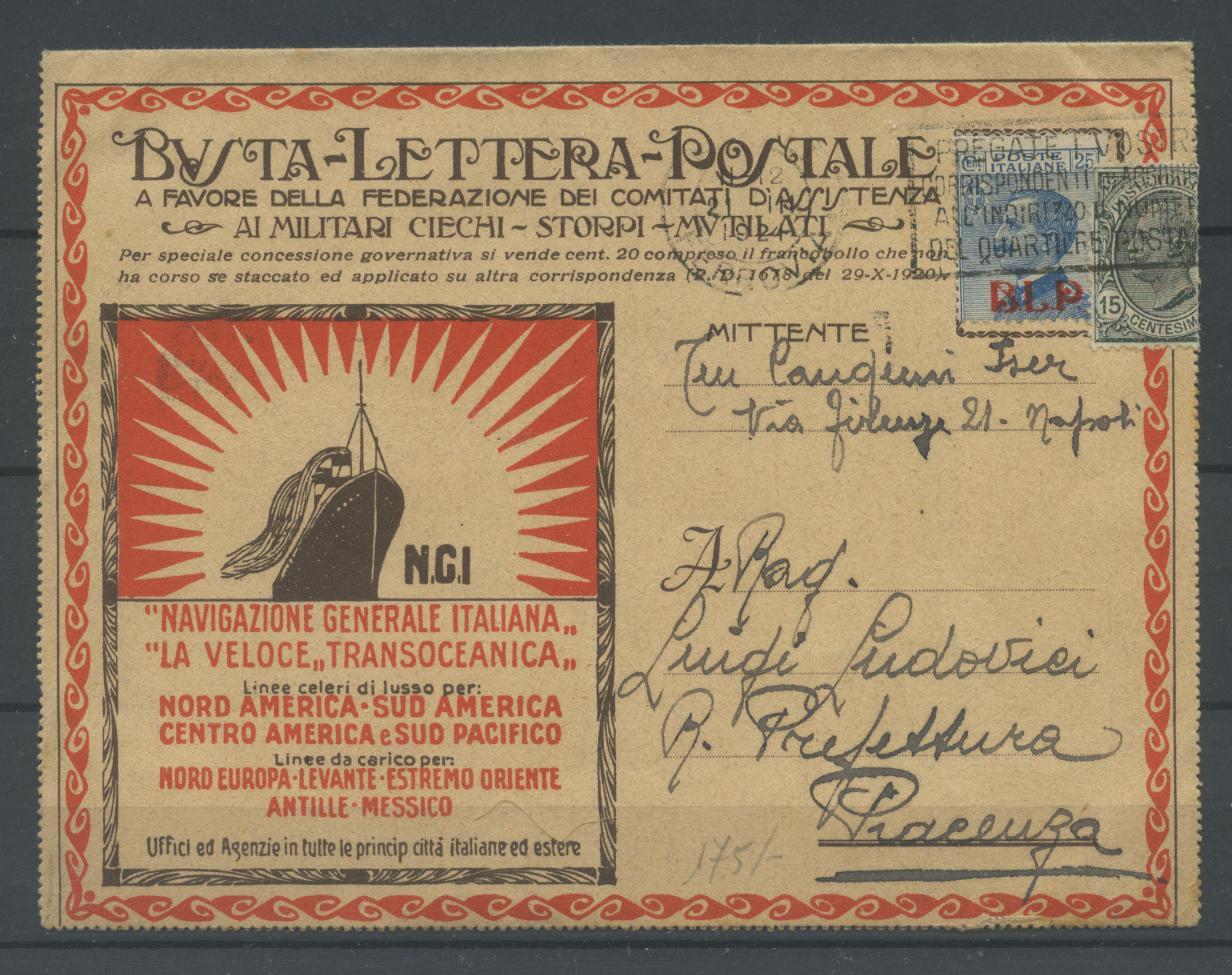 BUSTA-LETTERA-POSTALE
A FAVORE DELLA FEDERAZIONE DEI COMITATI D'ASSISTENZA
AI MILITARI CIECHI - STORPI - MVTILATI
Per speciale concessione governativa si vende cent. 20 compreso il francobollo che non
ha corso se staccato ed applicato su altra corrispondenza (R. D. 1678 del 29-X-1920).
12
1924
PREGATE I VOSTRI
CORRISPONDENTI
ALL'INDIRIZZO
DEL QUARTIERE POSTALE
POSTE
ITALIANE
25
BLP
15
CENTESIMI
MITTENTE
Via Firenze 21 - Napoli
A Rag.
Luigi Ludovici
R. Prefettura
Piacenza
N.G.I
"NAVIGAZIONE GENERALE ITALIANA„
"LA VELOCE„ TRANSOCEANICA„
Linee celeri di lusso per:
NORD AMERICA·SUD AMERICA
CENTRO AMERICA e SUD PACIFICO
Linee da carico per:
NORD EUROPA·LEVANTE·ESTREMO ORIENTE
ANTILLE·MESSICO
Uffici ed Agenzie in tutte le princip città italiane ed estere
175/-